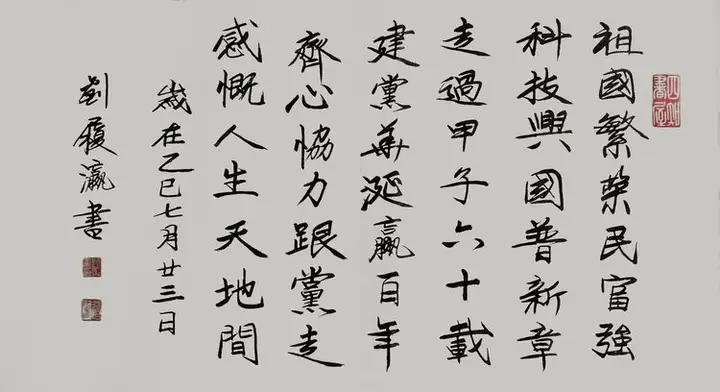 祖國繁榮民富強
科技興國普新章
走過甲子六十載
建黨華涎贏百年
齊心協力跟黨走
感慨人生天地間
歲在乙巳七月廿三日
劉瀛書